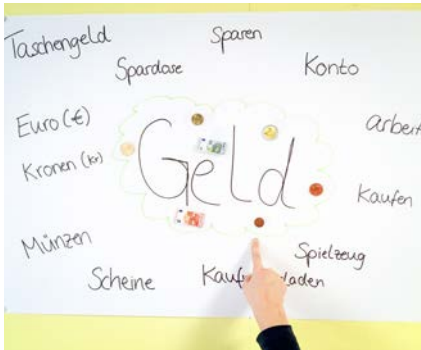 Taschengeld
Sparen
Spardose
Konto
Euro (€)
arbeit
Kronen (kr)
Geld
Kaufen
Münzen
Spielzeug
Scheine
Kauf
laden